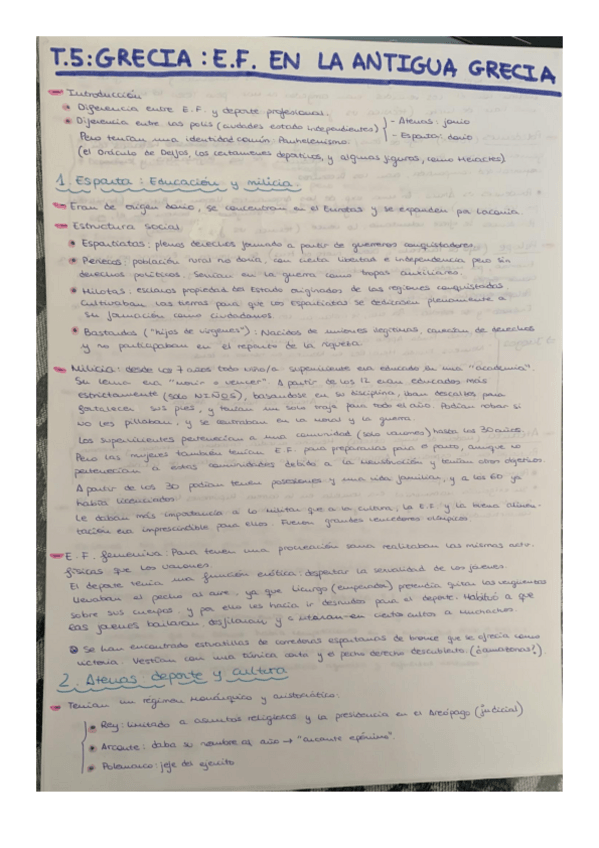 T.5: GRECIA : E.F. EN LA ANTIGUA GRECIA
Introducción
Diferencia entre E.F. y deporte profesional.
Diferencia entre las polis (ciudades estado independientes) - Atenas: jonio
Pero tenían una identidad común: Panhelenismo. - Esparta: dorio
(el Oráculo de Delfos, los certámenes deportivos, y algunas figuras, como Heracles)
1. Esparta: Educación y milicia.
Eran de origen dorio, se concentran en el Eurotas y se expanden por Laconia.
Estructura social
Espartiatas: plenos derechos formado a partir de guerreros conquistadores.
Periecos: población rural no doria, con cierta libertad e independencia pero sin
derechos políticos. Servían en la guerra como tropas auxiliares.
Hilotas: esclavos propiedad del Estado originados de las regiones conquistadas
cultivaban las tierras para que los Espartiatas se dedicasen plenamente a
su formación como ciudadanos.
Bastardos ("hijos de vírgenes"): Nacidos de uniones ilegítimas, carecían de derechos
y no participaban en el reparto de la riqueza.
Milicia: desde los 7 años todo niño/a superviviente era educado en una "academia".
Su lema era "morir o vencer". A partir de los 12 eran educados más
estrictamente (solo NIÑOS), basándose en su disciplina, iban descalzos para
fortalecer sus pies, y tenían un solo traje para todo el año. Podían robar si
no les pillaban, y se centraban en la moral y la guerra.
Los supervivientes pertenecían a una comunidad (solo varones) hasta los 30 años.
Pero las mujeres también tenían E.F. para prepararlas para el parto, aunque no
pertenecían a estas comunidades debido a la menstruación y tenían otros objetivos.
A partir de los 30 podían tener posesiones y una vida familiar, y a los 60 ya
había licenciados.
Le daban más importancia a lo militar que a la cultura, la E.F. y la buena alimen-
tación era imprescindible para ellos. Fueron grandes vencedores olímpicos.
E.F. femenina: Para tener una procreación sana realizaban las mismas actv.
físicas que los varones.
El deporte tenía una función erótica: despertar la sexualidad de los jóvenes.
Llevaban el pecho al aire, ya que Licurgo (emperador) pretendía quitar las vergüenzas
sobre sus cuerpos, y por ello les hacía ir desnudos para el deporte. Habituó a que
las jóvenes bailaran, desfilaran y cantaran en ciertos cultos a muchachos.
Se han encontrado estatuillas de corredoras espartanas de bronce que se ofrecía como
victoria. Vestían con una túnica corta y el pecho derecho descubierto (¿amazonas?).
2. Atenas: deporte y cultura
Tenían un régimen monárquico y aristocrático:
Rey: limitado a asuntos religiosos y la presidencia en el Areópago (judicial)
Arconte: daba su nombre al año → "arconte epónimo".
Polemarco: jefe del ejército